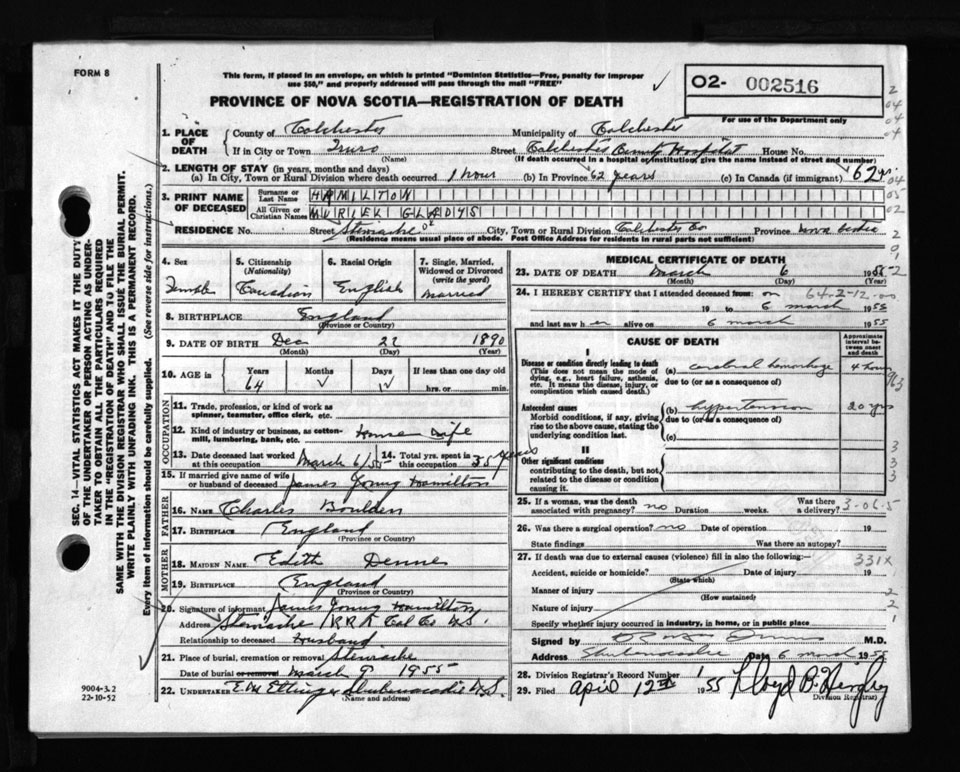 FORM 8
This form, if placed in an envelope, on which is printed "Dominion Statistics—Free, penalty for improper
use $50," and properly addressed will pass through the mail "FREE"
02- 002516
For use of the Department only
PROVINCE OF NOVA SCOTIA—REGISTRATION OF DEATH
1. PLACE OF DEATH
County of Colchester Municipality of Colchester
If in City or Town Truro Street Colchester County Hospital House No.
(Name) (If death occurred in a hospital or institution, give the name instead of street and number)
2. LENGTH OF STAY (in years, months and days)
(a) In City, Town or Rural Division where death occurred 1 hour (b) In Province 62 years (c) In Canada (if immigrant) 62 yrs.
3. PRINT NAME OF DECEASED
Surname or Last Name HAMILTON
All Given or Christian Names MURIEL GLADYS
RESIDENCE No. Street Stewiacke City, Town or Rural Division Colchester Co Province Nova Scotia
(Residence means usual place of abode. Post Office Address for residents in rural parts not sufficient)
4. Sex Female
5. Citizenship (Nationality) Canadian
6. Racial Origin English
7. Single, Married, Widowed or Divorced (write the word) Married
8. BIRTHPLACE England
(Province or Country)
9. DATE OF BIRTH Dec 22 1890
(Month) (Day) (Year)
10. AGE in Years Months Days If less than one day
64 hrs. or min.
OCCUPATION
11. Trade, profession, or kind of work as
spinner, teamster, office clerk, etc.
12. Kind of industry or business, as cotton-
mill, lumbering, bank, etc. House wife
13. Date deceased last worked at this occupation March 6/55
14. Total yrs. spent in this occupation 35 years
15. If married give name of wife
or husband of deceased James Young Hamilton
FATHER
16. NAME Charles Boulden
17. BIRTHPLACE England
(Province or Country)
MOTHER
18. MAIDEN NAME Edith Denne
19. BIRTHPLACE England
(Province or Country)
20. Signature of informant James Young Hamilton
Address Stewiacke RR Col Co N.S.
Relationship to deceased Husband
21. Place of burial, cremation or removal Stewiacke
Date of burial or removal March 9 1955
22. UNDERTAKER Ettinger Shubenacadie N.S.
(Name and address)
MEDICAL CERTIFICATE OF DEATH
23. DATE OF DEATH March 6 1955
(Month) (Day) (Year)
24. I HEREBY CERTIFY that I attended deceased from: on
64-2-12
19 to 6 March 1955
and last saw her alive on 6 march 1955
CAUSE OF DEATH
Approximate interval between onset and death
I
Disease or condition directly leading to death
(This does not mean the mode of
dying, e.g., heart failure, asthenia,
etc. It means the disease, injury, or
complication which caused death.)
(a) cerebral hemorrhage 4 hours
due to (or as a consequence of)
Antecedent causes
Morbid conditions, if any, giving
rise to the above cause, stating the
underlying condition last.
(b) hypertension 20 yrs
due to (or as a consequence of)
(c)
II
Other significant conditions
contributing to the death, but not
related to the disease or condition
causing it.
25. If a woman, was the death
associated with pregnancy? no Duration weeks. Was there a delivery?
3-06-5
26. Was there a surgical operation? no Date of operation 19
State findings Was there an autopsy?
27. If death was due to external causes (violence) fill in also the following:—
331X
Accident, suicide or homicide? Date of injury 19
(State which)
Manner of injury
(How sustained)
Nature of injury
Specify whether injury occurred in industry, in home, or in public place
Signed by M.D.
Address Shubenacadie Date 6 march 1955
28. Division Registrar's Record Number 1
29. Filed April 12th 1955 Lloyd B.
Division Registrar
SEC. 14—VITAL STATISTICS ACT MAKES IT THE DUTY
OF THE UNDERTAKER OR PERSON ACTING AS UNDER-
TAKER TO OBTAIN ALL THE PARTICULARS REQUIRED
IN THE "REGISTRATION OF DEATH" AND TO FILE THE
SAME WITH THE DIVISION REGISTRAR WHO SHALL ISSUE THE BURIAL PERMIT.
WRITE PLAINLY WITH UNFADING INK. THIS IS A PERMANENT RECORD.
Every item of information should be carefully supplied. (See reverse side for instructions.)
9004-3.2
22-10-52